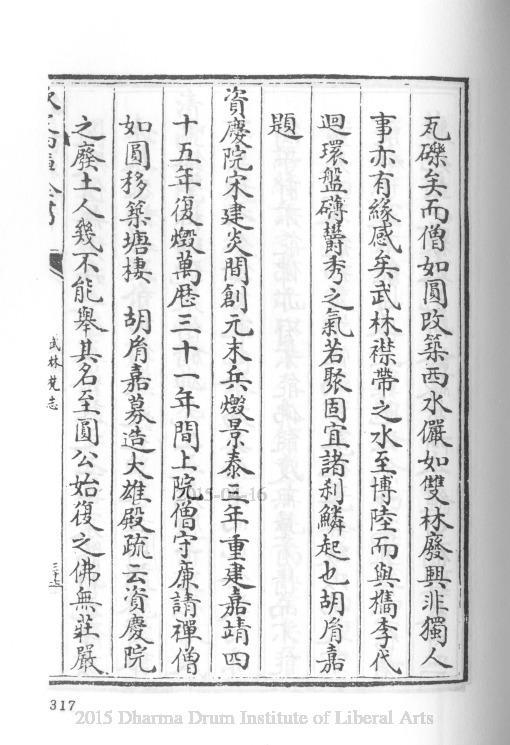 瓦礫矣而僧如圓改築西水儼如雙林廢興非獨人
事亦有緣感矣武林襟帶之水至博陸而與檇李代
迴環盤礴欝秀之氣若聚固宜諸刹鱗起也胡胤嘉
題
資慶院宋建炎間創元末兵燬景泰三年重建嘉靖四
十五年復燬萬歷三十一年間上院僧守廉請禪僧
如圓移築塘棲 胡胤嘉募造大雄殿疏云資慶院
之廢土人幾不能舉其名至圓公始復之佛無莊嚴
武林梵志
317
2015-04-16
2015 Dharma Drum Institute of Liberal Arts